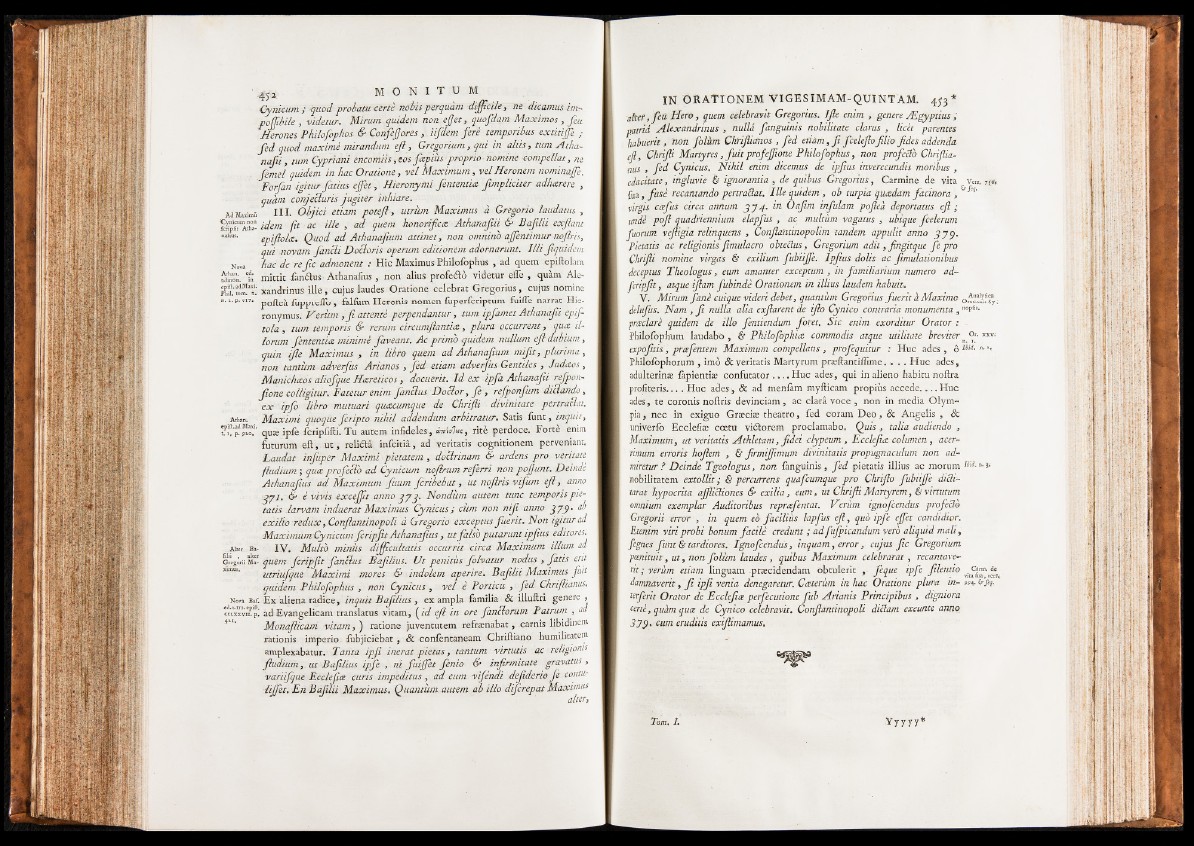 452 MONITUM
Cynicum ; quod probatu certè nobis perquàm difficile, ne dicamus im-
possibile, videtur. Mirum quidem non esset, quosdam Maximos, seu
Herones Philosophos & Confessores, iisdem ferè temporibus extitisse ;
sed quod maximè mirandum est, Gregorium, qui in aliis, tum Atha-
nasii, tum Cypriani encomiis, eos sæpiùs proprio nomine compellat, ne
semel quidem in hac Oratione, vel Maximum, vel Heronem nominasse.
Forsan igitur satius esset, Hieronymi sententiæ simpliciter adhærere,
quàm conjecturis jugiter inhiare.
Ad Maximū
Cynicum non
scripsit Atha-
nasius.
III. Objici etiam potest, utrùm Maximus à Gregorio laudatus,
idem sit ac ille, ad quem honorificæ Athanasii & Basilii exstant
epistolæ. Quod ad Athanasium attinet, non omninò assentimur nostris,
qui novam sancti Doctoris operum editionem adornarunt. Illi siquidem
hac de re sic admonent : Hic Maximus Philosophus, ad quem epistolam
Nova
Athan. edi-
tionem. in
epist. ad Maxi.
Phil. tom. 1.
n. 1. p. 917.
mittit sanctus Athanasius, non alius profectò videtur esse, quàm Ale-
xandrinus ille, cujus laudes Oratione celebrat Gregorius, cujus nomine
posteà suppresso, falsùm Heronis nomen superscriptum fuisse narrat Hie-
ronymus. Verùm, si attentè perpendantur, tum ipsamet Athanasii epis-
tola, tum temporis & rerum circumstantiæ, plura occurrent, quæ il-
lorum sententiæ minimè faveant. Ac primò quidem nullum est dubium,
quin iste Maximus, in libro quem ad Athanasium misit, plurima,
non tantùm adversùs Arianos, sed etiam adversùs Gentiles, Judæos,
Manichæos aliosque Hæreticos, docuerit. Id ex ipsa Athanasii respon-
sione colligitur. Fatetur enim sanctus Doctor, se, responsum dictando,
ex ipso libro mutuari quæcumque de Christi divinitate pertractat.
Maximi quoque scripto nihil addendum arbitratur. Satis sunt, inquit,
Athan.
epist. ad Maxi.
t. 1. p. 920.
quæ ipse scripsisti. Tu autem infideles, rité perdoce. Fortè enim
futurum est, ut, relictâ inscitiâ, ad veritatis cognitionem perveniant.
Laudat insuper Maximi pietatem, doctrinam & ardens pro veritate
studium ; quæ profectò ad Cynicum nostrum referri non possunt. Deinde
Athanasius ad Maximum suum scribebat, ut nostris visum est, anno
371. & è vivis excessit anno 373. Nondùm autem tunc temporis pie-
tatis larvam induerat Maximus Cynicus ; cùm non nisi anno 379. ab
exilio redux, Constantinopoli à Gregorio exceptus fuerit. Non igitur ad
Maximum Cynicum scripsit Athanasius, ut falsò putarunt ipsius editores.
Alter Ba-
silii, alter
Gregorii Ma-
ximus.
IV. Multò minùs difficultatis occurrit circa Maximum illum ad
quem scripsit sanctus Basilius. Ut penitùs solvatur nodus, satis erit
utriusque Maximi mores & indolem aperire. Basilii Maximus fuit
quidem Philosophus, non Cynicus, vel è Porticu, sed Christianus.
Nova Bas.
Ex aliena radice, inquit Basilius, ex ampla familia & illustri genere,
ad Evangelicam translatus vitam, ( id est in ore sanctorum Patrum, ad
Monasticam vitam, ) ratione juventutem refrænabat, carnis libidinem
rationis imperio subjiciebat, & consentaneam Christiano humilitatem
amplexabatur. Tanta ipsi inerat pietas, tantum virtutis ac religionis
studium, ut Basilius ipse, ni fuisset senio & infirmitate gravatus,
variisque Ecclesiæ curis impeditus, ad eum visendi desiderio se contu-
lisset. En Basilii Maximus. Quantùm autem ab illo discrepat Maximus
alter,
IN ORATIONEM VIGESIMAM-QUINTAM. 453*
alter, seu Hero, quem celebravit Gregorius. Iste enim, genere Ægyptius,
patriâ Alexandrinus, nullâ sanguinis nobilitate clarus, licèt parentes
habuerit, non solùm Christianos, sed etiam, si scelesto filio fides addenda
est, Christi Martyres, fuit professione Philosophus, non profectò Christia-
nus, sed Cynicus. Nihil enim dicemus de ipsius inverecundis moribus,
edacitate, ingluvie & ignorantia, de quibus Gregorius, Carmine de vita
Vers. 750.
& seq.
sua, fusè recantando pertractat. Ille quidem, ob turpia quædam facinora,
virgis cæsus circa annum 374. in Oasim insulam posteà deportatus est ;
undè post quadriennium elapsus, ac multùm vagatus, ubique scelerum
suorum vestigia relinquens, Constantinopolim tandem appulit anno 379.
Pietatis ac religionis simulacro obtectus, Gregorium adit, fingitque se pro
Christi nomine virgas & exilium subiisse. Ipsius dolis ac simulationibus
deceptus Theologus, eum amanter exceptum, in familiarium numero ad-
scripsit, atque istam subindè Orationem in illius laudem habuit.
V. Mirum sanè cuique videri debet, quantùm Gregorius fuerit à Maximo
Analysis
Orationis 25.
delusus. Nam, si nulla alia exstarent de isto Cynico contraria monumenta,
præclarè quidem de illo sentiendum foret. Sic enim exorditur Orator :
Philosophum laudabo, & Philosophiæ commodis atque utilitate breviter
Or. xxv.
n. 1.
expositis, præsentem Maximum compellans, prosequitur : Huc ades, ô
Ibid. n. 2.
Philosophorum, imò & veritatis Martyrum præstantissime. . . . Huc ades,
adulterinæ sapientiæ confutator . . . . Huc ades, qui in alieno habitu nostra
profiteris. . . . Huc ades, & ad mensam mysticam propiùs accede. . . . Huc
ades, te coronis nostris devinciam, ac clarâ voce, non in media Olym-
pia, nec in exiguo Græciæ theatro, sed coram Deo, & Angelis, &
universo Ecclesiæ cœtu victorem proclamabo. Quis, talia audiendo,
Maximum, ut veritatis Athletam, fidei clypeum, Ecclesiæ columen, acer-
rimum erroris hostem, & firmissimum divinitatis propugnaculum non ad-
miretur ? Deinde Tgeologus, non sanguinis, sed pietatis illius ac morum
Ibid. n. 3.
nobilitatem extollit ; & percurrens quascumque pro Christo subiisse dicti-
tarat hypocrita afflictiones & exilia, eum, ut Christi Martyrem, & virtutum
omnium exemplar Auditoribus repræsentat. Verùm ignoscendus profectò
Gregorii error, in quem eò faciliùs lapsus est, quò ipse esset candidior.
Etenim viri probi bonum facilè credunt ; ad suspicandum verò aliquid mali,
segnes sunt & tardiores. Ignoscendus, inquam, error, cujus sic Gregorium
pœnituit, ut, non solùm laudes, quibus Maximum celebrarat, recantave-
rit ; verùm etiam linguam præcidendam obtulerit, seque ipse silentio
Carm. de
vita sua, vers.
damnaverit, si ipsi venia denegaretur. Cæterùm in hac Oratione plura in-
seruit Orator de Ecclesiæ persecutione sub Arianis Principibus, digniora
certè, quàm quæ de Cynico celebravit. Constantinopoli dictam exeunte anno
379. cum eruditis existimamus.
Tom. I. Yyyyy*